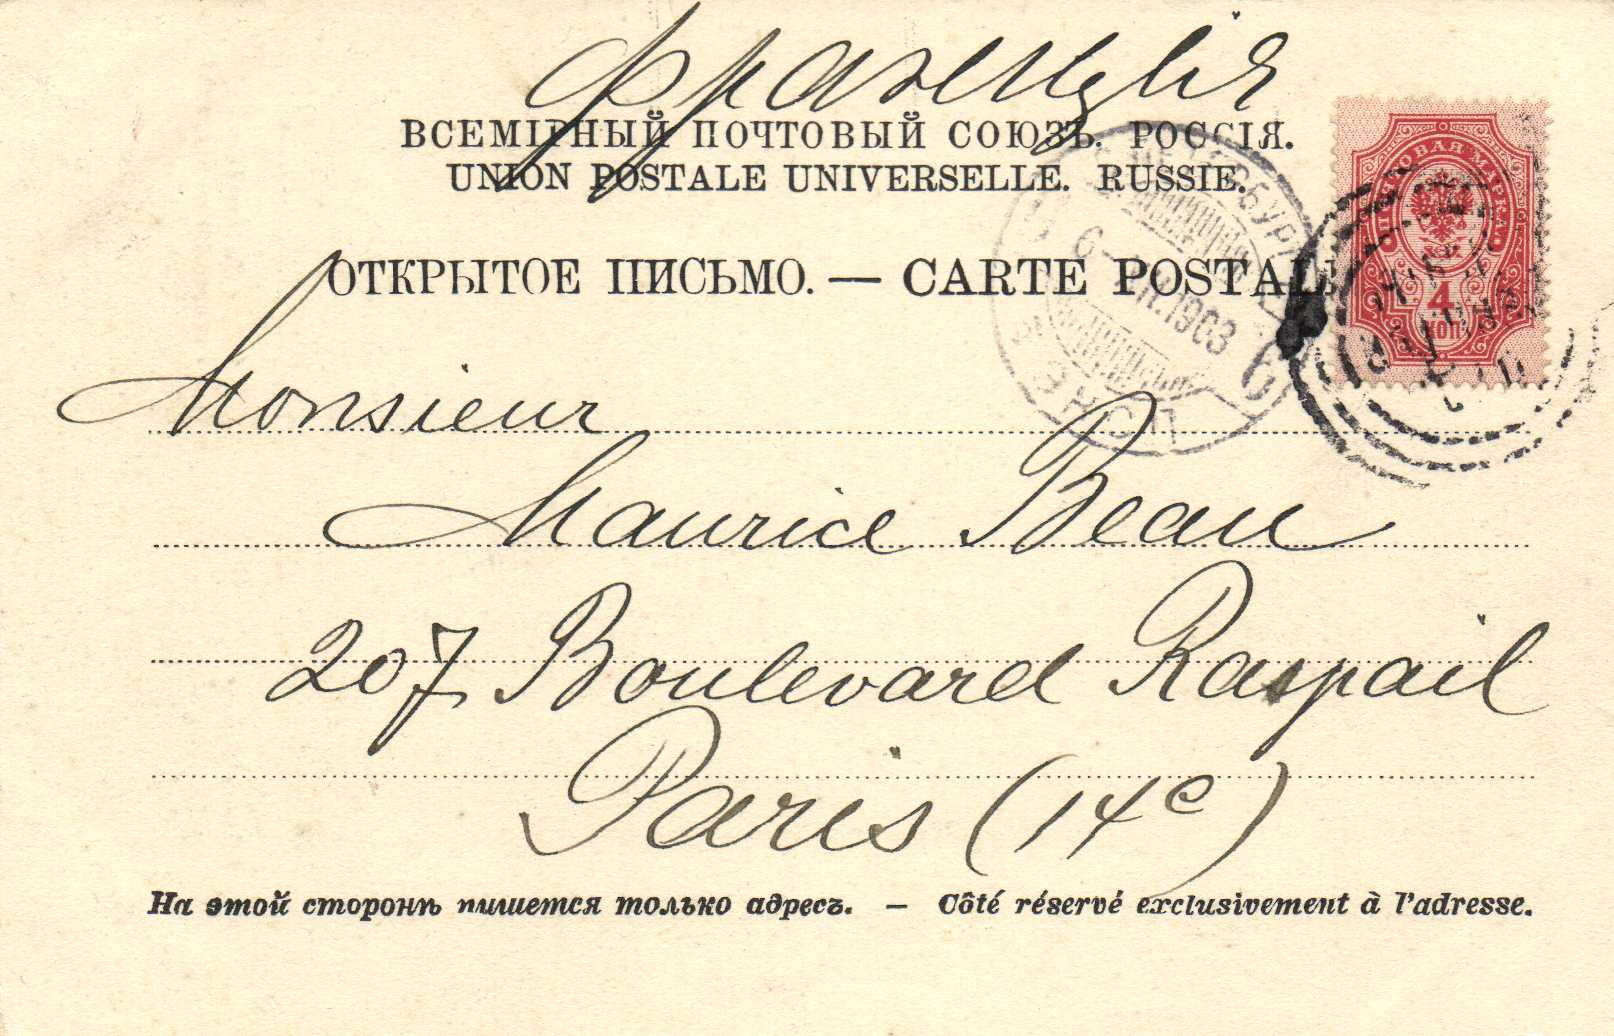 Франція
ВСЕМІРНЫЙ ПОЧТОВЫЙ СОЮЗЪ. РОССІЯ.
UNION POSTALE UNIVERSELLE. RUSSIE.
ПОЧТОВАЯ МАРКА
4
КОП
ОТКРЫТОЕ ПИСЬМО. — CARTE POSTALE
1903
6
Monsieur
Maurice Beau
207 Boulevard Raspail
Paris (14e)
На этой сторонѣ пишется только адресъ. — Côté réservé exclusivement à l'adresse.